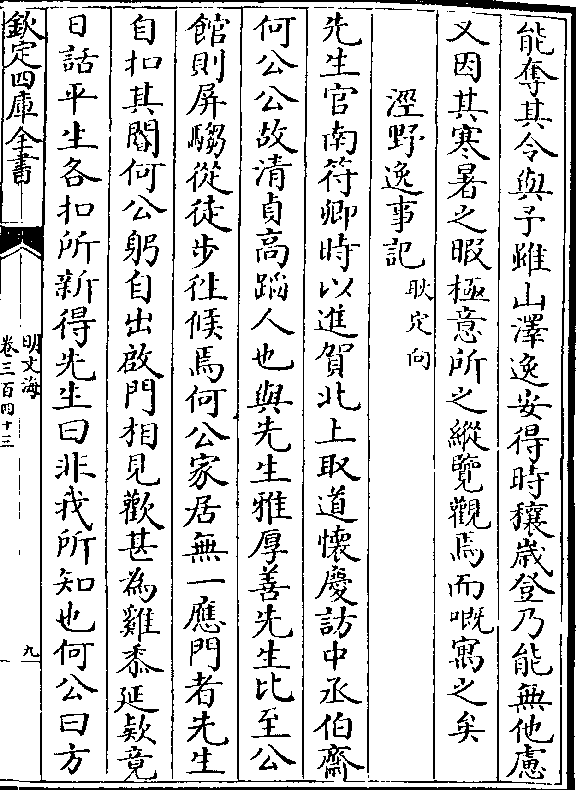 能奪其令與予雖山澤逸安得時穰歲登乃能無他慮
又因其寒暑之暇極意所之縱覽觀焉而嘅寓之矣
涇野逸事記 耿定向
先生官南符卿時以進賀北上取道懷慶訪中丞伯齋
何公公故清貞高蹈人也與先生雅厚善先生比至公
館則屏騶從徒步徃候焉何公家居無一應門者先生
自扣其閽何公躬自出啟門相見歡甚為雞黍延欵竟
日話平生各扣所新得先生曰非我所知也何公曰方
欽定四庫全書
明文海
卷三百四十三
九